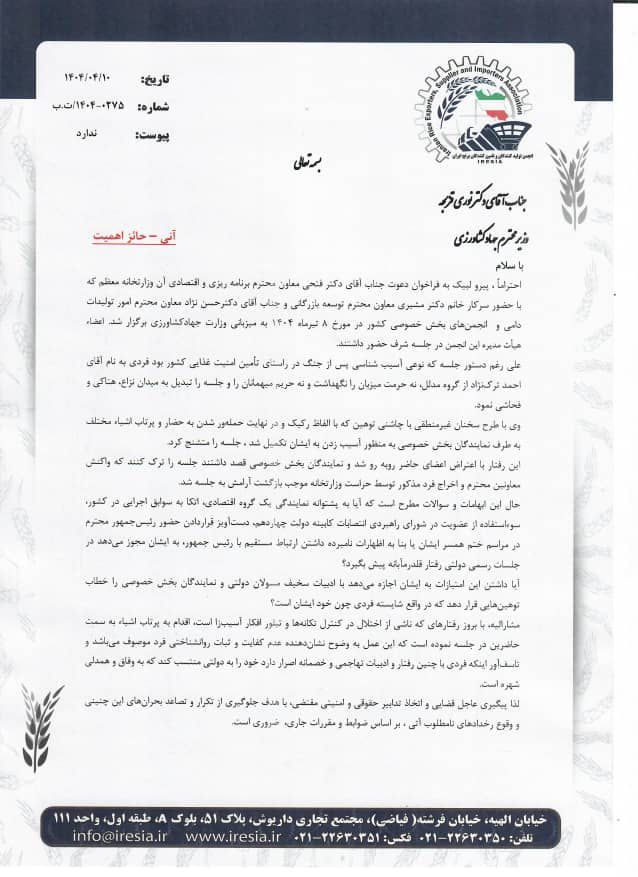 تاریخ: ۱۴۰۴/۰۴/۱۰
شماره: ۱۴۰۴-۰۲۷۵/ت.ب
پیوست: ندارد
Iranian Rice Exporters, Supplier and Importers Association
انجمن تولید کنندگان و تامین کنندگان برنج ایران
IRESIA
بسمه تعالی
جناب آقای دکتر نوری قزلجه
وزیر محترم جهاد کشاورزی
آنی – حائز اهمیت
با سلام
احتراماً ، پیرو لبیک به فراخوان دعوت جناب آقای دکتر فتحی معاون محترم برنامه ریزی و اقتصادی آن وزارتخانه معظم که
با حضور سرکار خانم دکتر مشیری معاون محترم توسعه بازرگانی و جناب آقای دکترحسن نژاد معاون محترم امور تولیدات
دامی و انجمن‌های بخش خصوصی کشور در مورخ ۸ تیرماه ۱۴۰۴ به میزبانی وزارت جهادکشاورزی برگزار شد. اعضاء
هیأت مدیره این انجمن در جلسه شرف حضور داشتند.
علی رغم دستور جلسه که نوعی آسیب شناسی پس از جنگ در راستای تأمین امنیت غذایی کشور بود فردی به نام آقای
احمد ترک‌نژاد از گروه مدلل، نه حرمت میزبان را نگهداشت و نه حریم میهمانان را و جلسه را تبدیل به میدان نزاع، هتاکی و
فحاشی نمود.
وی با طرح سخنان غیرمنطقی با چاشنی توهین که با الفاظ رکیک و در نهایت حمله‌ور شدن به حضار و پرتاب اشیاء مختلف
به طرف نمایندگان بخش خصوصی به منظور آسیب زدن به ایشان تکمیل شد ، جلسه را متشنج کرد.
این رفتار با اعتراض اعضای حاضر روبه رو شد و نمایندگان بخش خصوصی قصد داشتند جلسه را ترک کنند که واکنش
معاونین محترم و اخراج فرد مذکور توسط حراست وزارتخانه موجب بازگشت آرامش به جلسه شد.
حال این ابهامات و سوالات مطرح است که آیا به پشتوانه نمایندگی یک گروه اقتصادی، اتکا به سوابق اجرایی در کشور،
سوءاستفاده از عضویت در شورای راهبردی انتصابات کابینه دولت چهاردهم، دست‌آویز قراردادن حضور رئیس‌جمهور محترم
در مراسم ختم همسر ایشان یا بنا به اظهارات نامبرده داشتن ارتباط مستقیم با رئیس جمهور، به ایشان مجوز می‌دهد در
جلسات رسمی دولتی رفتار قلدرمآبانه پیش بگیرد؟
آیا داشتن این امتیازات به ایشان اجازه می‌دهد با ادبیات سخیف مسولان دولتی و نمایندگان بخش خصوصی را خطاب
توهین‌هایی قرار دهد که در واقع شایسته فردی چون خود ایشان است؟
مشارالیه، با بروز رفتارهای که ناشی از اختلال در کنترل تکانه‌ها و تبلور افکار آسیب‌زا است، اقدام به پرتاب اشیاء به سمت
حاضرین در جلسه نموده است که این عمل به وضوح نشان‌دهنده عدم کفایت و ثبات روانشناختی فرد موصوف می‌باشد و
تاسف‌آور اینکه فردی با چنین رفتار و ادبیات تهاجمی و خصمانه اصرار دارد خود را به دولتی منتسب کند که به وفاق و همدلی
شهره است.
لذا پیگیری عاجل قضایی و اتخاذ تدابیر حقوقی و امنیتی مقتضی، با هدف جلوگیری از تکرار و تصاعد بحران‌های این چنینی
و وقوع رخدادهای نامطلوب آتی ، بر اساس ضوابط و مقررات جاری، ضروری است.
خیابان الهیه، خیابان فرشته( فیاضی)، مجتمع تجاری داریوش، پلاک ۵۱، بلوک A، طبقه اول، واحد ۱۱۱
تلفن: ۲۲۶۳۰۳۵۰-۰۲۱ فکس: ۲۲۶۳۰۳۵۱-۰۲۱ www.iresia.ir info@iresia.ir